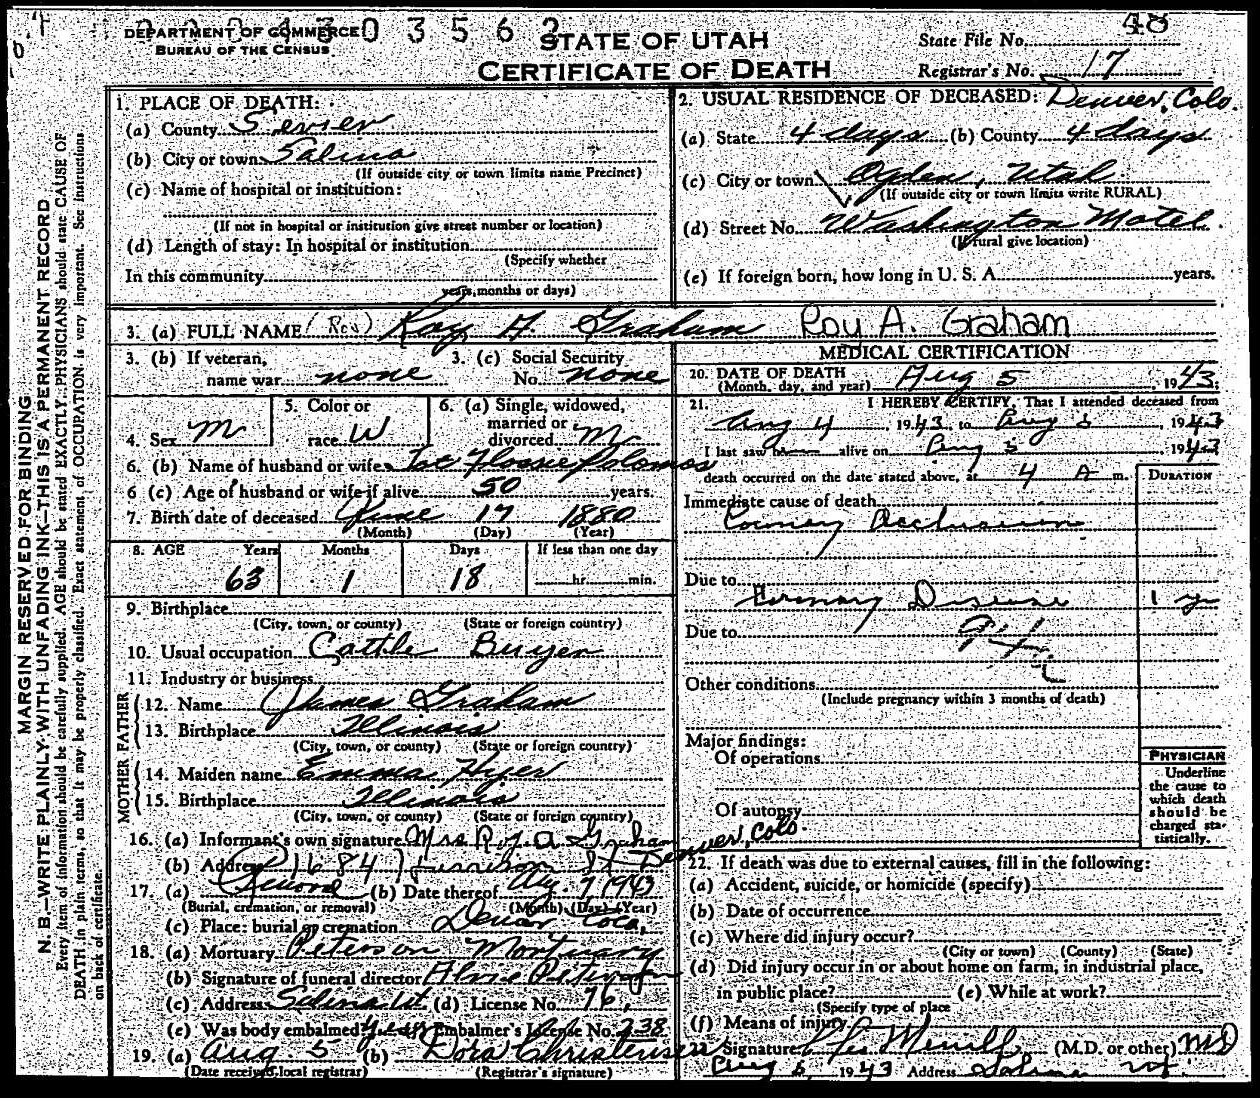 DEPARTMENT OF COMMERCE
BUREAU OF THE CENSUS
STATE OF UTAH
CERTIFICATE OF DEATH
State File No. 48
Registrar's No. 17
MARGIN RESERVED FOR BINDING
N. B.—WRITE PLAINLY, WITH UNFADING INK—THIS IS A PERMANENT RECORD
Every item of information should be carefully supplied. AGE should be stated EXACTLY. PHYSICIANS should state CAUSE OF
DEATH in plain terms, so that it may be properly classified. Exact statement of OCCUPATION is very important. See instructions
on back of certificate.
1. PLACE OF DEATH:
(a) County Sevier
(b) City or town Salina
(If outside city or town limits name Precinct)
(c) Name of hospital or institution:
(If not in hospital or institution give street number or location)
(d) Length of stay: In hospital or institution
(Specify whether
In this community
years, months or days)
2. USUAL RESIDENCE OF DECEASED: Denver, Colo.
(a) State 4 days (b) County 4 days
(c) City or town Ogden, Utah
(If outside city or town limits write RURAL)
(d) Street No. Washington Motel.
(If rural give location)
(e) If foreign born, how long in U. S. A. years.
3. (a) FULL NAME (Roy) Roy A. Graham Roy A. Graham
3. (b) If veteran,
name war none
3. (c) Social Security
No. none
4. Sex M
5. Color or
race W
6. (a) Single, widowed,
married or
divorced M
6. (b) Name of husband or wife Flossie
6 (c) Age of husband or wife if alive 50 years.
7. Birth date of deceased June 17 1880
(Month) (Day) (Year)
8. AGE Years Months Days If less than one day
63 1 18 hr. min.
9. Birthplace
(City, town, or county) (State or foreign country)
10. Usual occupation Cattle Buyer
11. Industry or business
FATHER
12. Name James Graham
13. Birthplace Illinois
(City, town, or county) (State or foreign country)
MOTHER
14. Maiden name Emma Hyer
15. Birthplace Illinois
(City, town, or county) (State or foreign country)
16. (a) Informant's own signature Mrs Roy. A Graham
(b) Address 1684 Harrison St Denver, Colo.
17. (a) Removal (b) Date thereof Aug. 7 1943
(Burial, cremation, or removal) (Month) (Day) (Year)
(c) Place: burial or cremation Denver Colo.
18. (a) Mortuary Peterson Mortuary
(b) Signature of funeral director Peterson
(c) Address Salina Ut (d) License No. 76
(e) Was body embalmed? yes Embalmer's License No. 238
19. (a) Aug 5 (b) Dora Christensen
(Date received local registrar) (Registrar's signature)
MEDICAL CERTIFICATION
20. DATE OF DEATH
(Month, day, and year) Aug 5, 1943.
21. I HEREBY CERTIFY, That I attended deceased from
Aug 4, 1943 to Aug 5 1943
I last saw alive on Aug 5 1943
death occurred on the date stated above, at 4 A m.
DURATION
Immediate cause of death
Coronary Occlusion
Due to
Coronary Disease 1 yr
Due to
Other conditions
(Include pregnancy within 3 months of death)
Major findings:
Of operations
Of autopsy
PHYSICIAN
Underline
the cause to
which death
should be
charged sta-
tistically.
22. If death was due to external causes, fill in the following:
(a) Accident, suicide, or homicide (specify)
(b) Date of occurrence
(c) Where did injury occur?
(City or town) (County) (State)
(d) Did injury occur in or about home on farm, in industrial place,
in public place? (e) While at work?
(Specify type of place
(f) Means of injury
23. Signature Merrill (M.D. or other) MD
Aug 5, 1943 Address Salina Ut